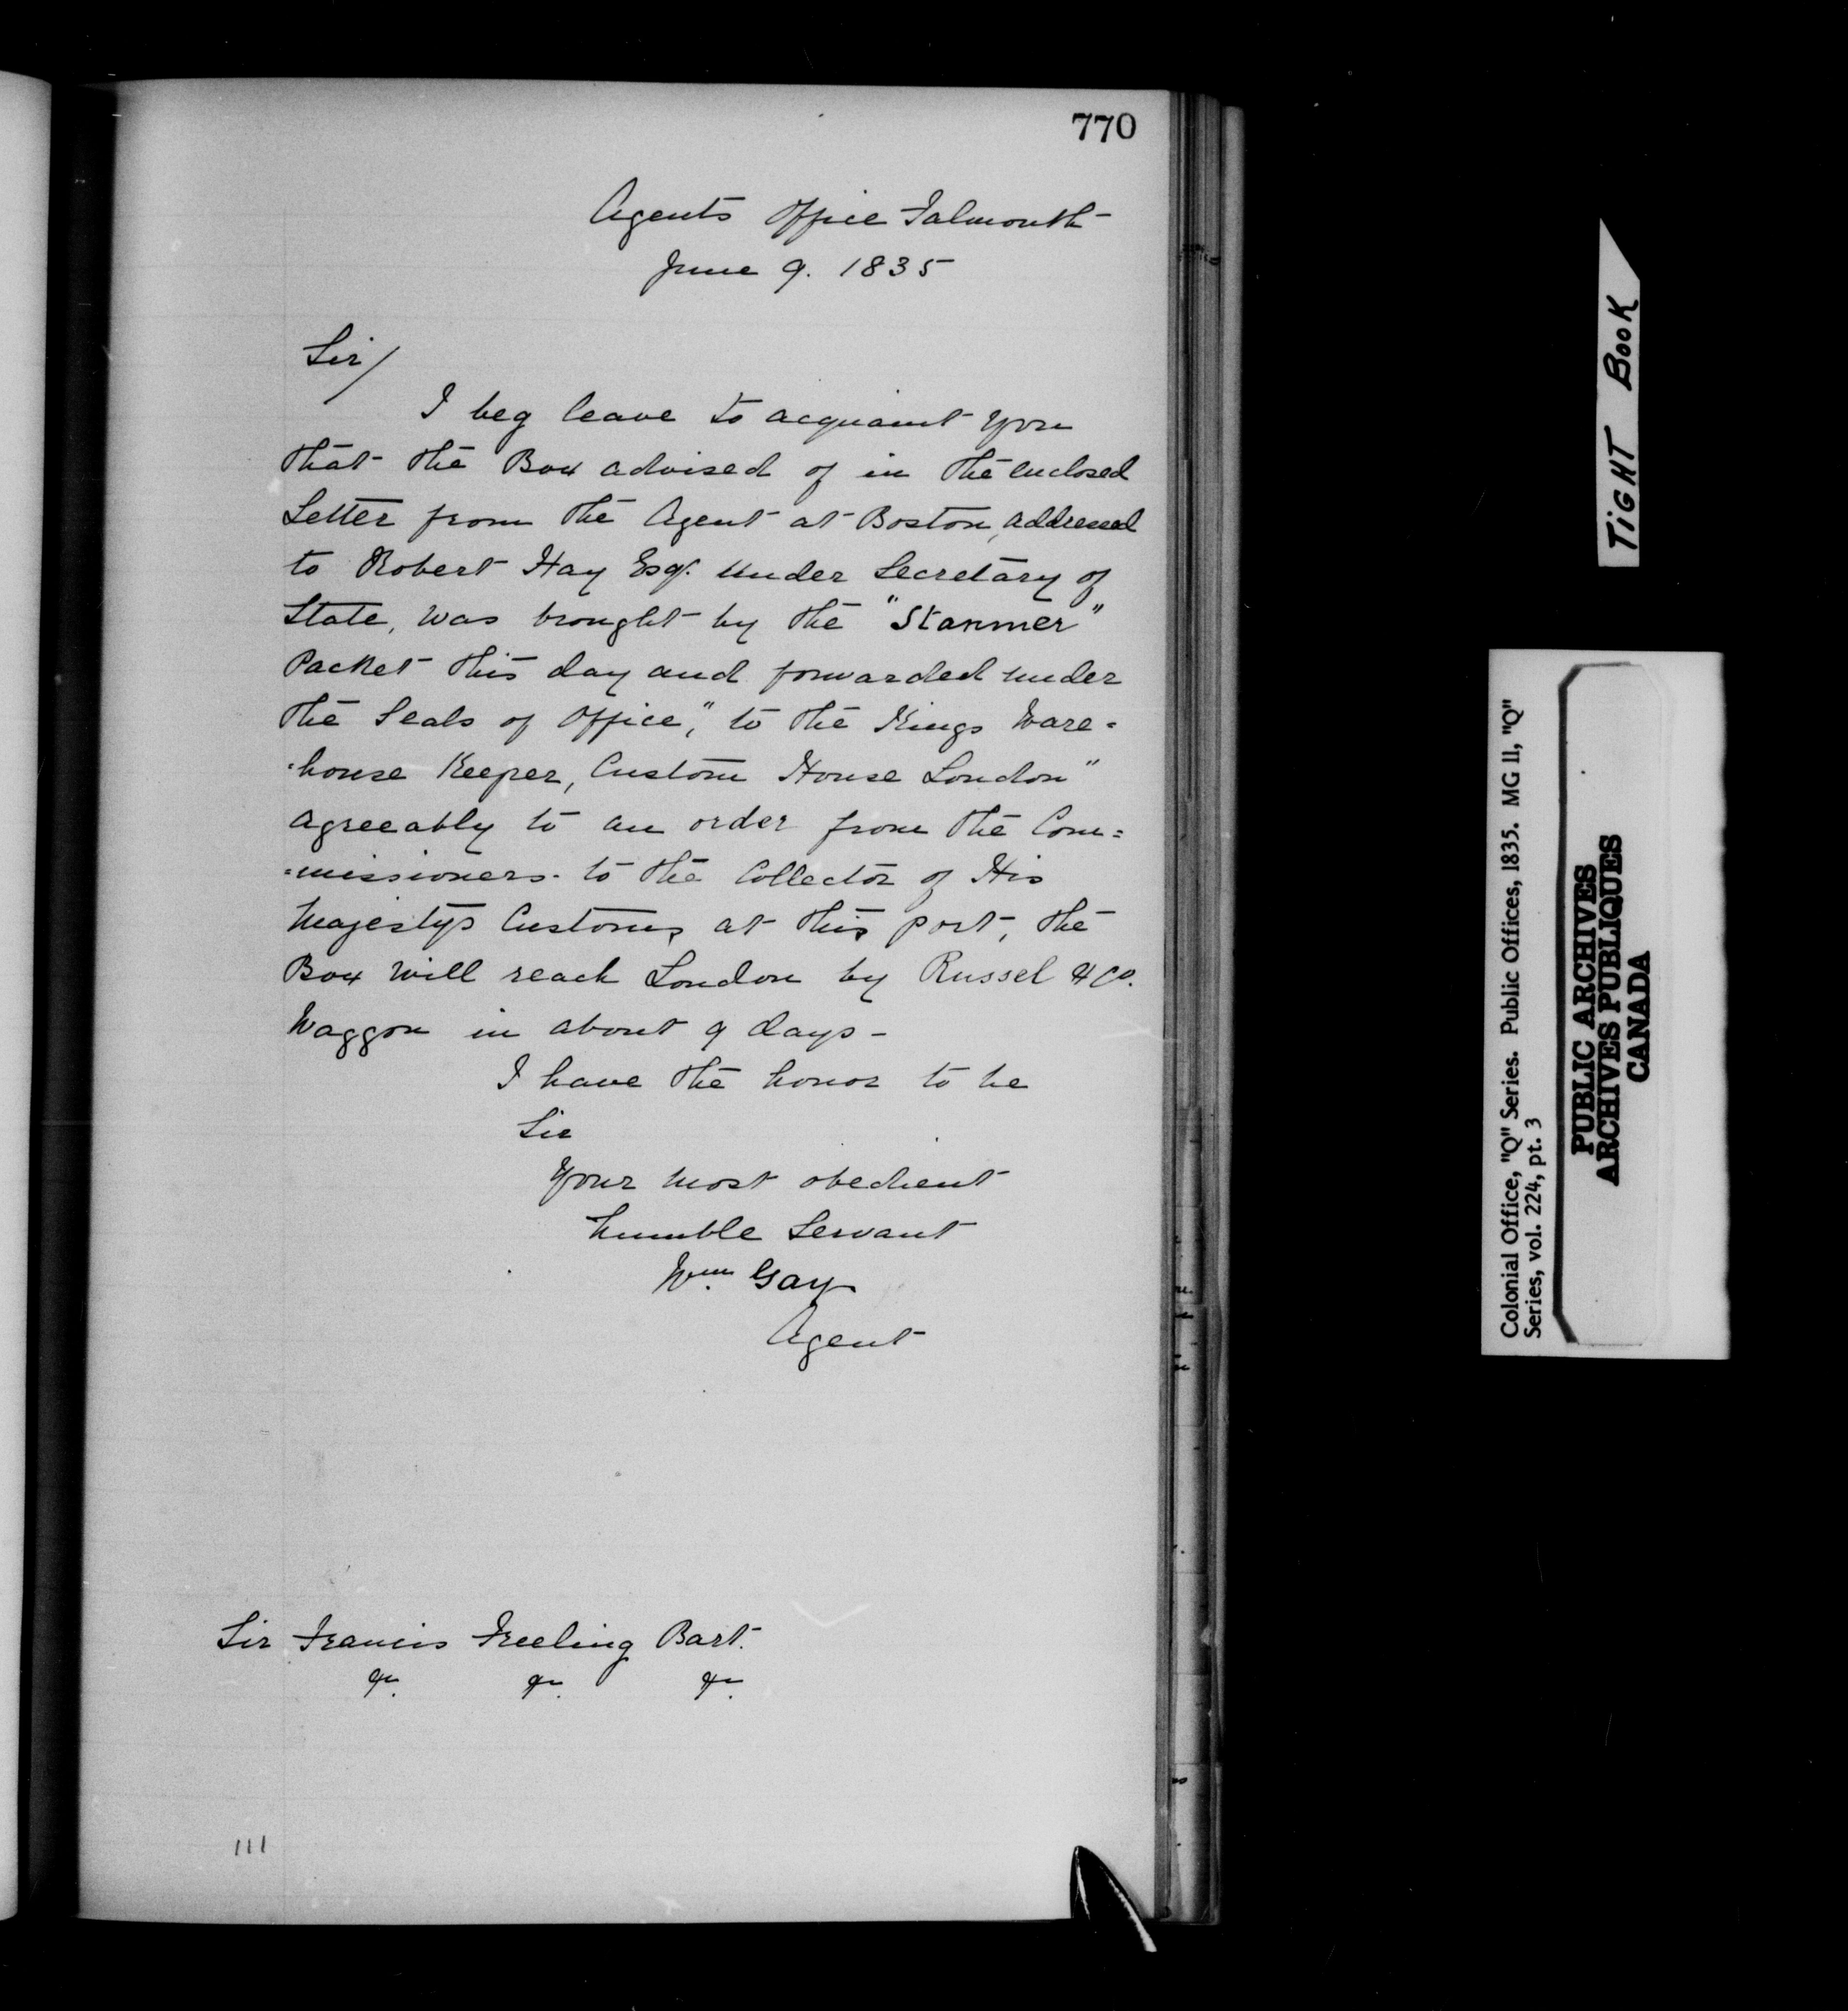 770
Agents Office Falmouth
June 9. 1835
Sir/
I beg leave to acquaint you
that the Box advised of in the enclosed
Letter from the Agent at Boston, addressed
to Robert Hay Esqr. Under Secretary of
State, was brought by the "Stanmer"
Packet this day and forwarded under
the Seals of Office, "to the Kings Ware=
=house Keeper, Custom House London"
agreeably to an order from the Com=
=missioners to the Collector of His
Majestys Customs, at this port, the
Box will reach London by Russel & Co.
Waggon in about 9 days -
I have the honor to be
Sir
Your most obedient
humble Servant
Wm. Gay
Agent
Sir Francis Freeling Bart.
&c. &c. &c.
111
TIGHT BOOK
Colonial Office, "Q" Series. Public Offices, 1835. MG 11, "Q"
Series, vol. 224, pt. 3
PUBLIC ARCHIVES
ARCHIVES PUBLIQUES
CANADA